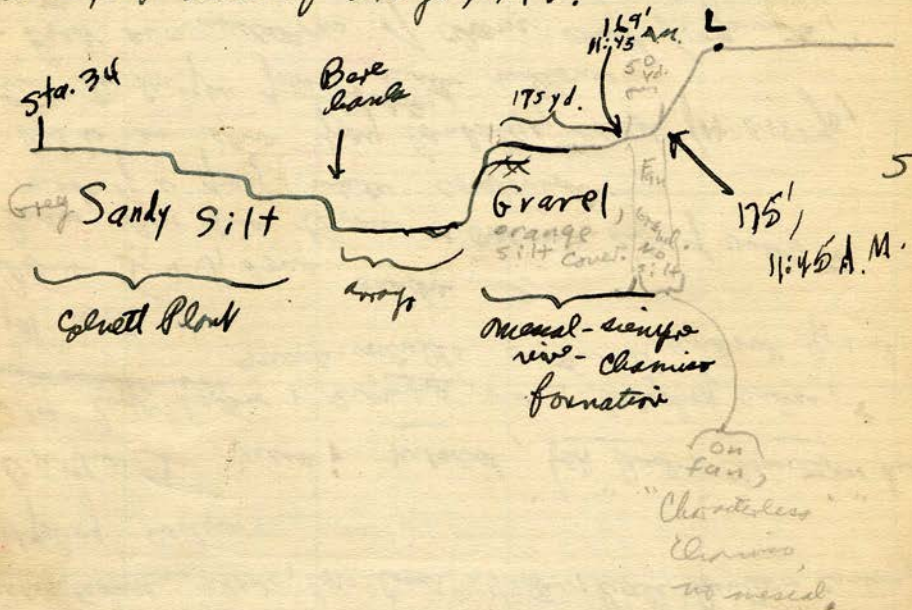 Sta. 34
Bare
bank
175 yd.
169'
11:45 A.M.
50
yd.
L
S
Grey Sandy Silt
Gravel,
orange
silt cover.
Fan
Gravel.
No
silt
175',
11:45 A.M.
Colnett Plant
arroyo
mescal - siempre
vive - Chamiso
formation
on
fan,
"Characterless"
Chamiso,
no mescal.